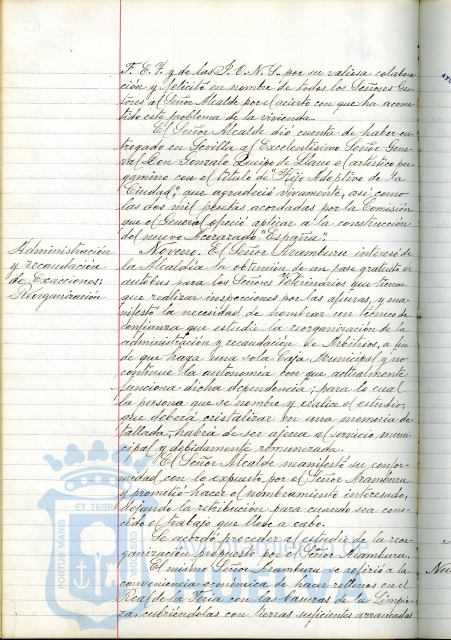 F. E. T. y de las J. O. N. S. por su valiosa colabora-
ción y felicitó en nombre de todos los Señores Ges-
tores al Señor Alcalde por el acierto con que ha acome-
tido este problema de la vivienda.
El Señor Alcalde dió cuenta de haber en-
tregado en Sevilla al Excelentísimo Señor Gene-
ral Don Gonzalo Queipo de Llano el artístico per-
gamino con el título de "Hijo Adoptivo de la
Ciudad", que agradeció vivamente, así como
las dos mil pesetas acordadas por la Comisión
que el General ofreció aplicar a la construcción
del nuevo Acorazado "España".
Administración
y recaudación
de Exacciones.
Reorganización
Noveno. El Señor Aramburu interesó de
la Alcaldía la obtención de un pase gratuito en
autobus para los Señores Veterinarios que tienen
que realizar inspecciones por las afueras, y ma-
nifestó la necesidad de nombrar un técnico de
confianza que estudie la reorganización de la
administración y recaudación de Arbitrios, a fin
de que haya una sola Caja Municipal y no
continue la autonomía con que actualmente
funciona dicha dependencia; para lo cual
la persona que se nombre y realice el estudio,
que deberá cristalizar en una memoria de-
tallada, habrá de ser ajena al servicio muni-
cipal y debidamente remunerada.
El Señor Alcalde manifestó su confor-
midad con lo expuesto por el Señor Aramburu
y prometió hacer el nombramiento interesado,
dejando la retribución para cuando sea cono-
cido el trabajo que lleve a cabo.
Se acordó proceder al estudio de la reor-
ganización propuesto por el Señor Aramburu.
El mismo Señor Aramburu se refirió a la
conveniencia económica de hacer rellenos en el
Real de la Feria con las basuras de la Limpie-
za, cubriéndolas con tierras suficientes arrancadas
ET TERRA
PORTUS MARIS